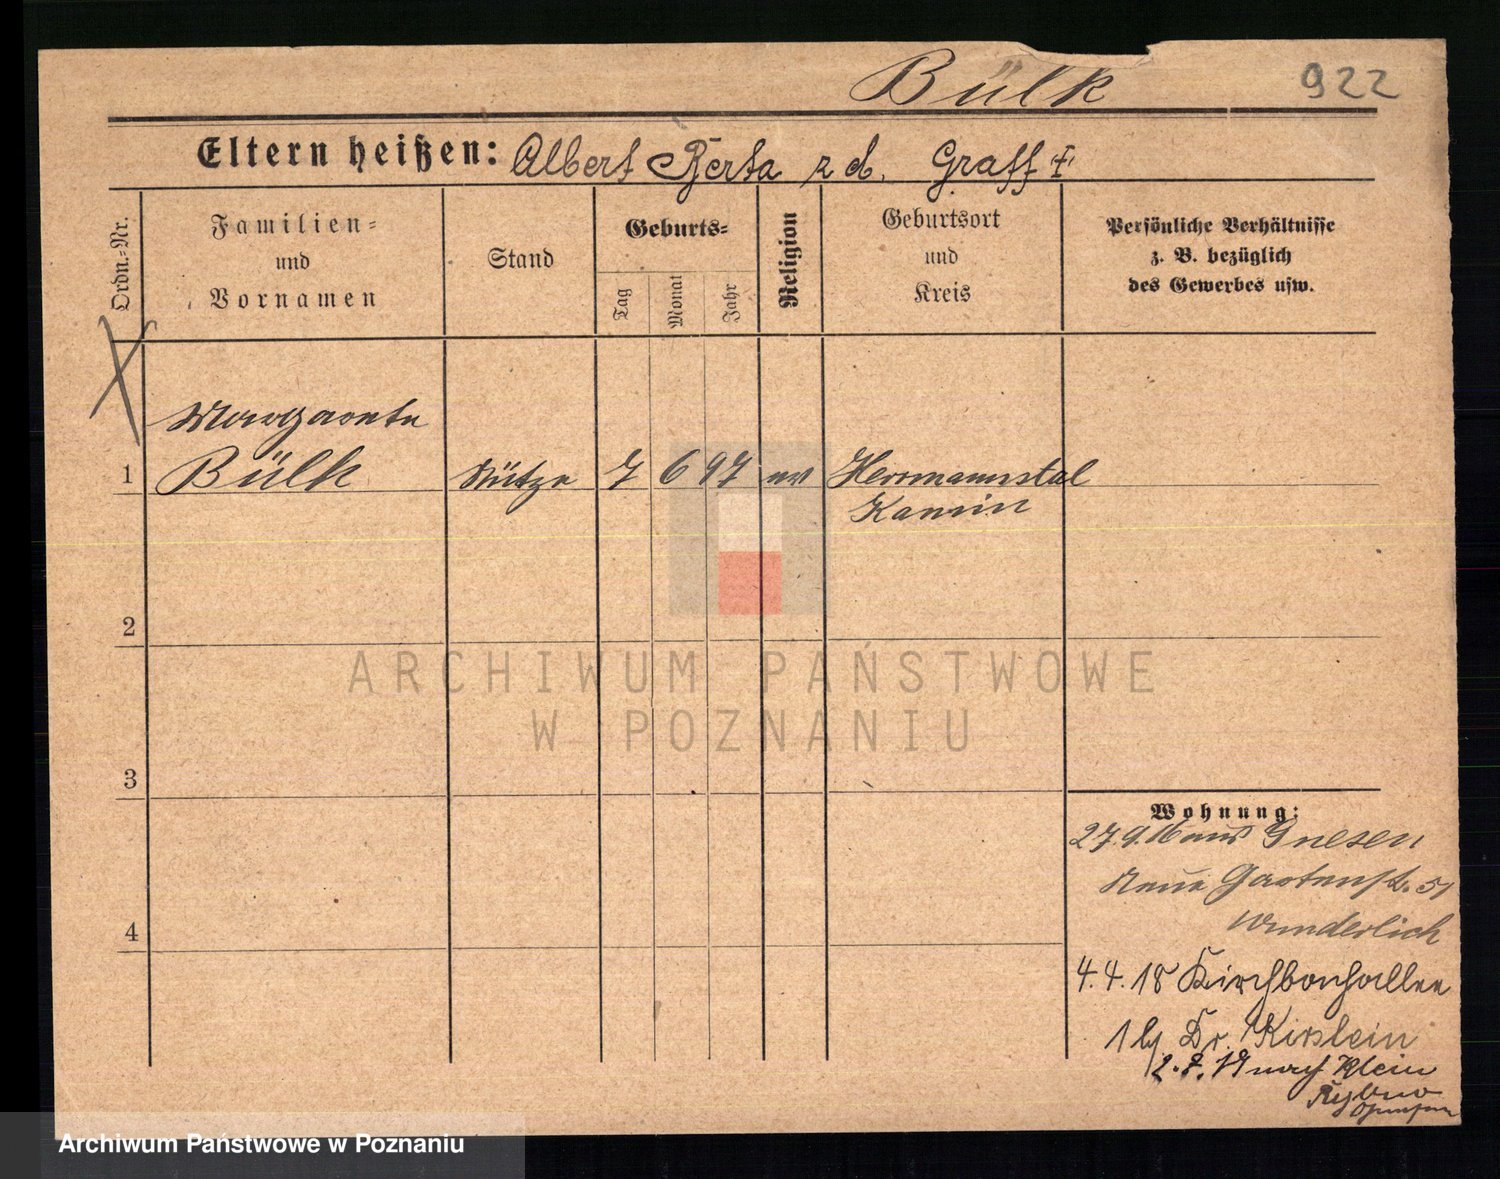 Bülk 922
Eltern heißen: Albert Berta z d. Graff
Ordn.-Nr.
Familien-
und
Vornamen
Stand
Geburts-
Tag
Monat
Jahr
Religion
Geburtsort
und
Kreis
Persönliche Verhältnisse
z. B. bezüglich
des Gewerbes usw.
Margarete
1 Bülk Stütze 7 6 97 ev Herrmannstal
Kamin
2
3
4
Wohnung:
27.9.16 aus Gnesen
Neue Gartenst. 51
Wunderlich
4.4.18 Kirchbachallee
1 bj Dr. Kirstein
2.7.19 nach Klein
Rybno
ARCHIWUM PAŃSTWOWE
W POZNANIU
Archiwum Państwowe w Poznaniu